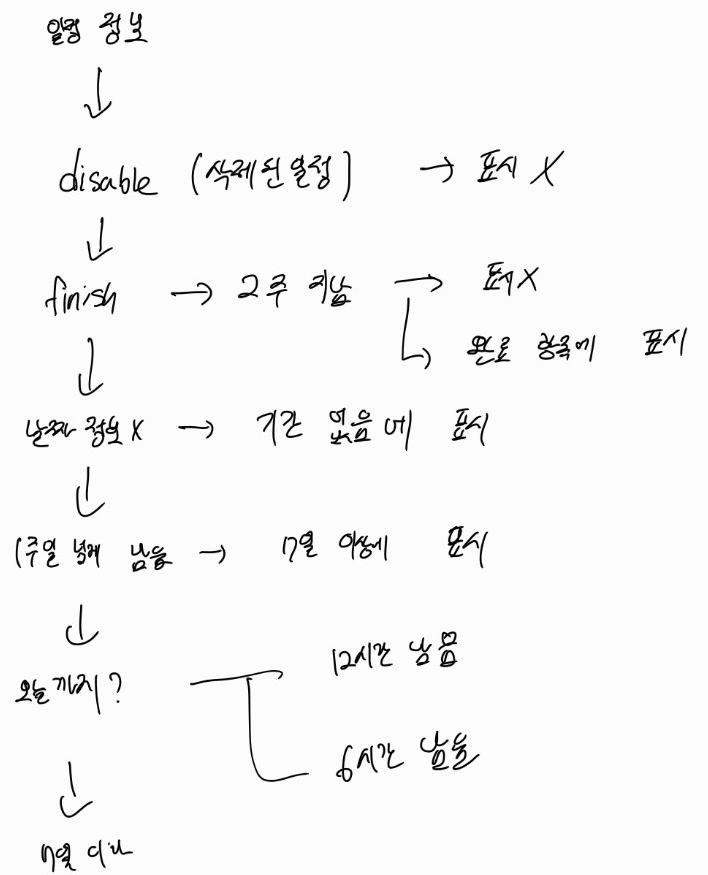 일정 정보
↓
disable (삭제된 일정) → 표시 X
↓
finish → 2주 지남 → 표시 X
↳ 완료 항목에 표시
↓
날짜 정보 X → 기간 없음에 표시
↓
1주일 넘게 남음 → 7일 이상에 표시
↓
오늘까지? 12시간 남음
6시간 남음
↓
7일 이내